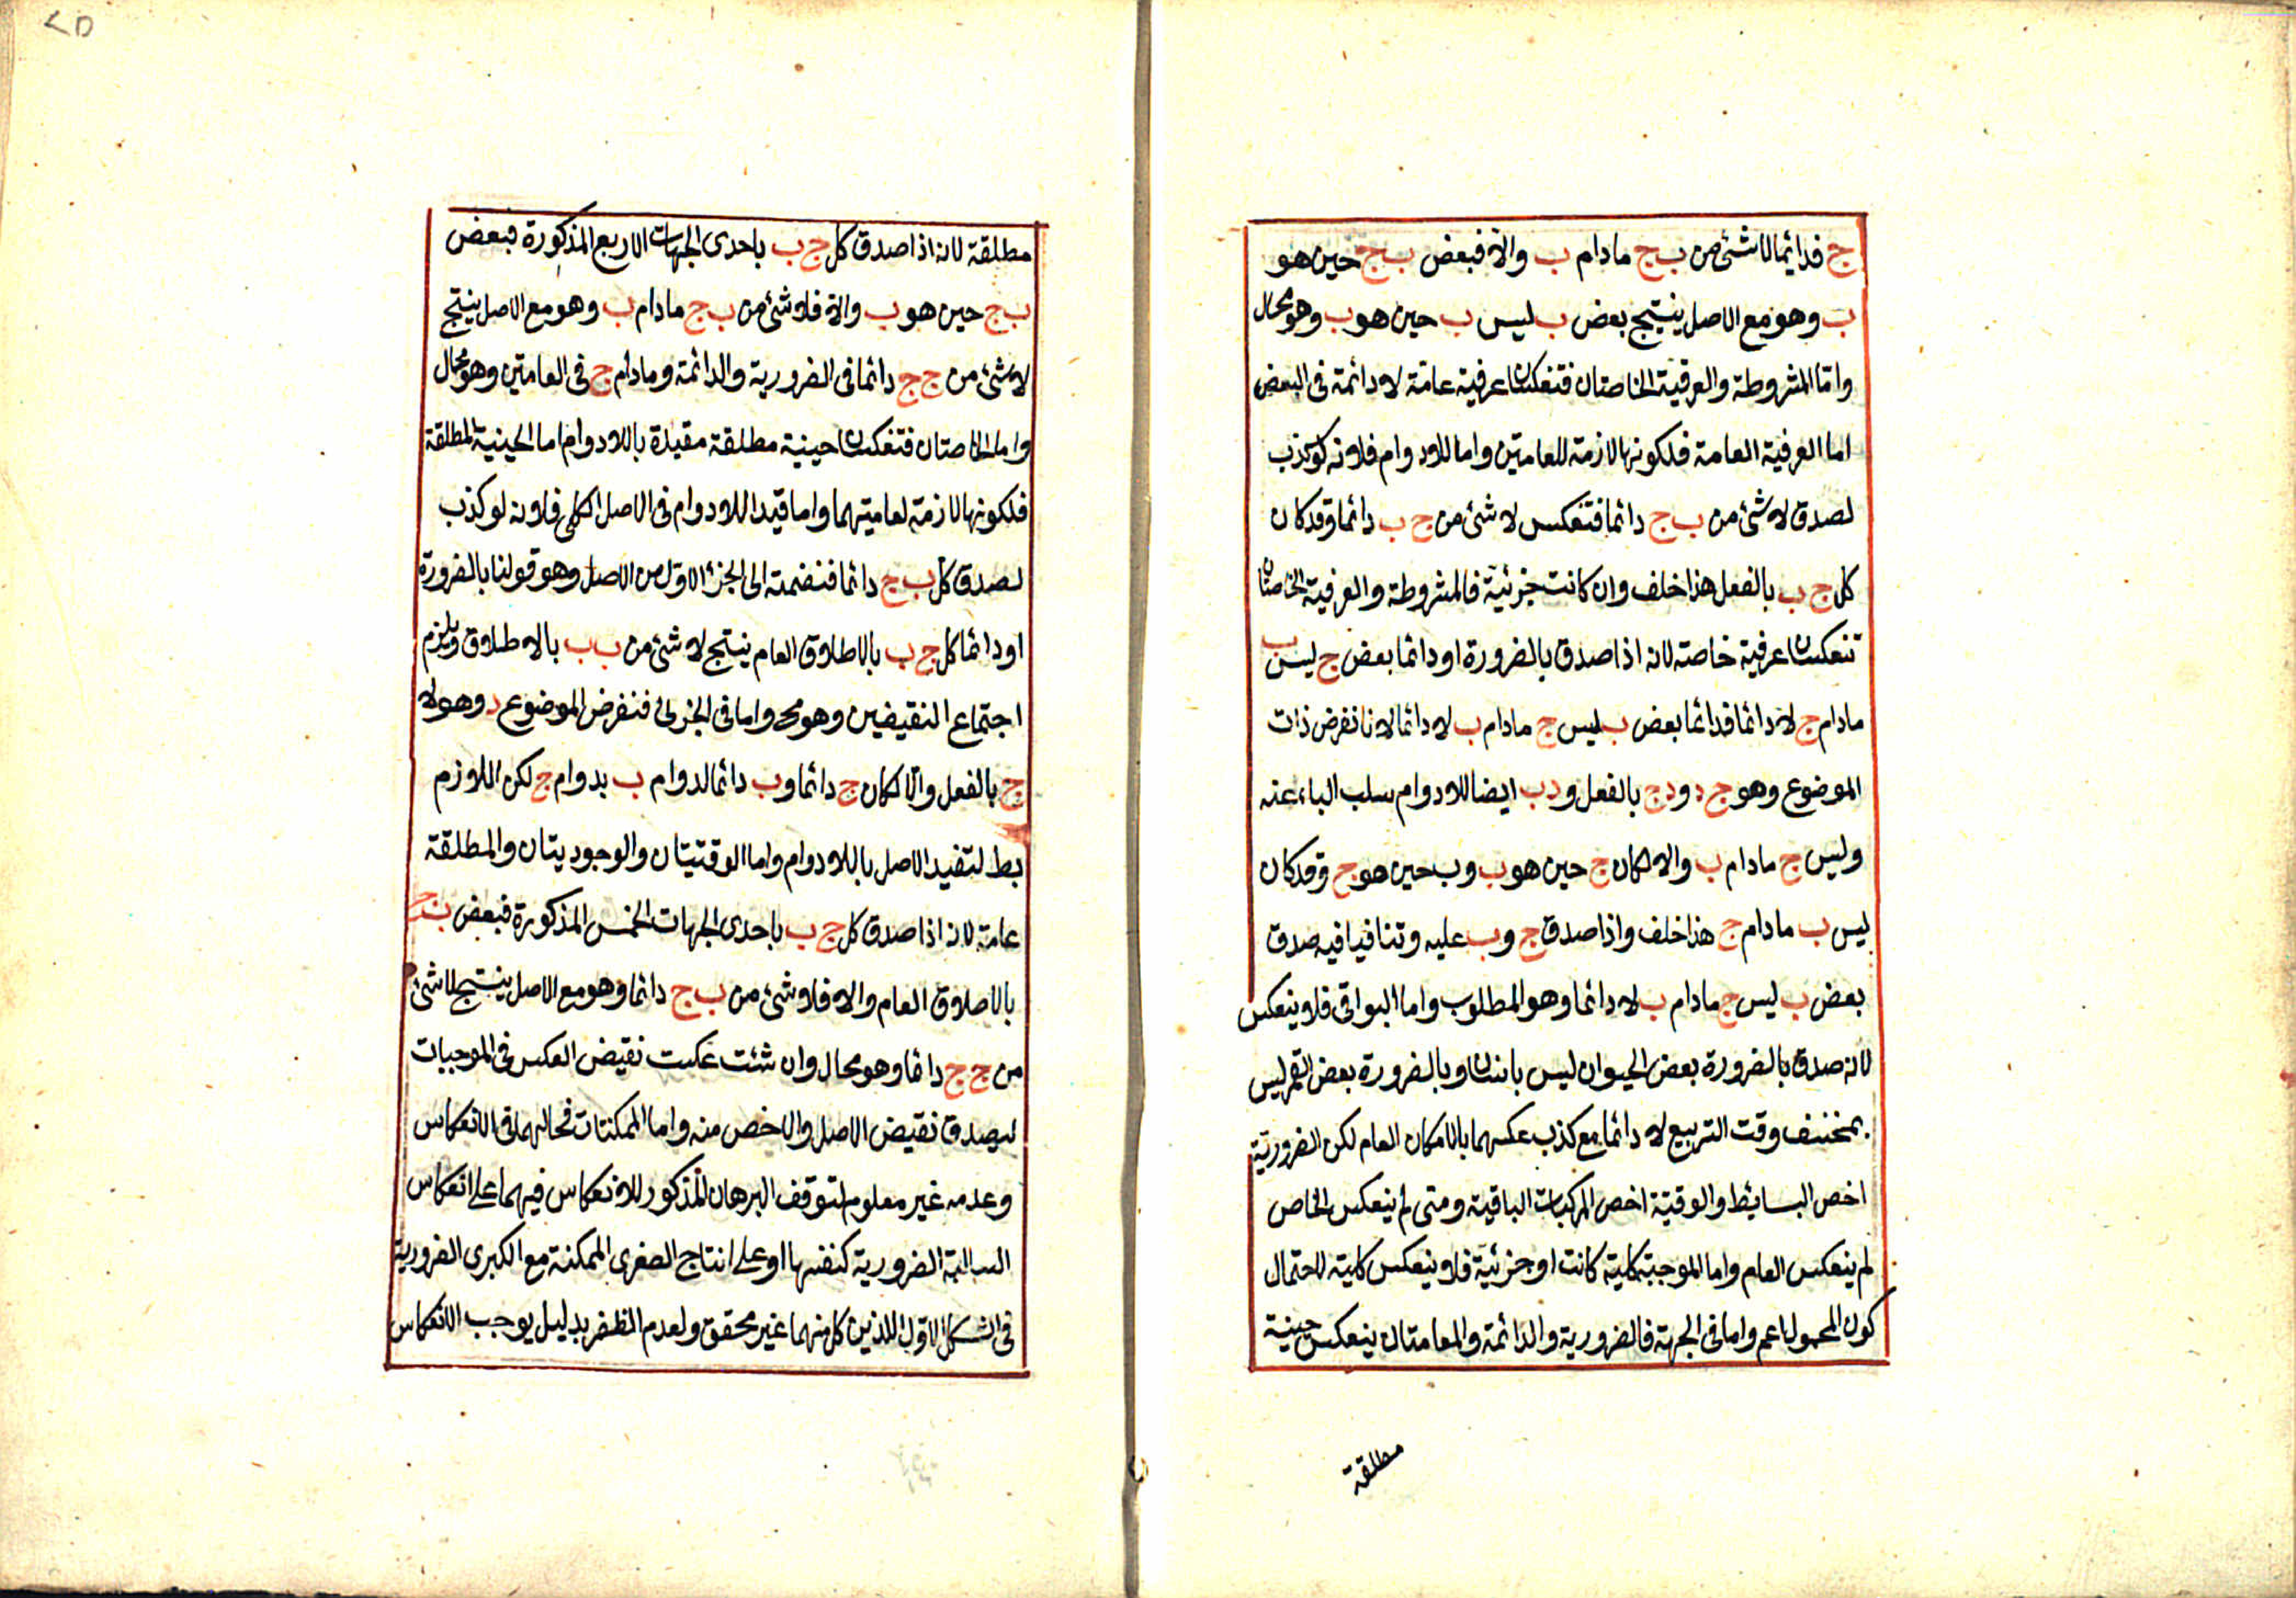 ج فدائما لا شئ من ب ج مادام ب والا فبعض ب ج حين هو
ب وهو مع الاصل ينتج بعض ب ليس ب حين هو ب وهو محال
واما المشروطة والعرفية الخاصتان فتنعكسان عرفية عامة لا دائمة فى البعض
اما العرفية العامة فلكونها لازمة للعامتين واما اللادوام فلانه لو كذب
لصدق لا شئ من ب ج دائما فتنعكس لا شئ من ج ب دائما وقد كان
كل ج ب بالفعل هذا خلف وان كانت جزئية فالمشروطة والعرفية الخاصتان
تنعكسان عرفية خاصة لانه اذا صدق بالضرورة او دائما بعض ج ليس ب
مادام ج لا دائما فدائما بعض ب ليس ج مادام ب لا دائما لانا نفرض ذات
الموضوع وهو ج د ود ج بالفعل ود ب ايضا للادوام سلب الباء عنه
وليس ج مادام ب والا لكان ج حين هو ب وب حين هو ج وقد كان
ليس ب مادام ج هذا خلف واذا صدق ج وب عليه وتنافيا فيه صدق
بعض ب ليس ج مادام ب لا دائما وهو المطلوب واما البواقى فلا ينعكس
لانه صدق بالضرورة بعض الحيوان ليس بانسان وبالضرورة بعض القمر ليس
بمنخسف وقت التربيع لا دائما مع كذب عكسهما بالامكان العام لكن الضرورية
اخص البسائط والوقتية اخص المركبات الباقية ومتى لم ينعكس الخاص
لم ينعكس العام واما الموجبة كلية كانت او جزئية فلا ينعكس كلية لاحتمال
كون المحمول اعم واما فى الجهة فالضرورية والدائمة والعامتان ينعكس حينية
مطلقة
مطلقة لانه اذا صدق كل ج ب باحدى الجهات الاربع المذكورة فبعض
ب ج حين هو ب والا فلا شئ من ب ج مادام ب وهو مع الاصل ينتج
لا شئ من ج ج دائما فى الضرورية والدائمة ومادام ج فى العامتين وهو محال
واما الخاصتان فتنعكسان حينية مطلقة مقيدة باللادوام اما الحينية المطلقة
فلكونها لازمة لعامتيهما واما قيد اللادوام فى الاصل الكلى فلانه لو كذب
لصدق كل ب ج دائما فنضمه الى الجزء الاول من الاصل وهو قولنا بالضرورة
او دائما كل ج ب بالاطلاق العام ينتج لا شئ من ب ب بالاطلاق ويلزم
اجتماع النقيضين وهو مح واما فى الجزئى فنفرض الموضوع د وهو لا
ج بالفعل والا لكان ج دائما وب دائما لدوام ب بدوام ج لكن اللازم
بط لتقيد الاصل باللادوام واما الوقتيتان والوجوديتان والمطلقة
عامة لانه اذا صدق كل ج ب باحدى الجهات الخمس المذكورة فبعض ب ج
بالاطلاق العام والا فلا شئ من ب ج دائما وهو مع الاصل ينتج لا شئ
من ج ج دائما وهو محال وان شئت عكست نقيض العكس فى الموجبات
ليصدق نقيض الاصل والاخص منه واما الممكنتان فحالهما فى الانعكاس
وعدمه غير معلوم لتوقف البرهان المذكور للانعكاس فيهما على انعكاس
السالبة الضرورية كنفسها او على انتاج الصغرى الممكنة مع الكبرى الضرورية
فى الشكل الاول اللذين كل منهما غير محقق ولعدم الظفر بدليل يوجب الانعكاس